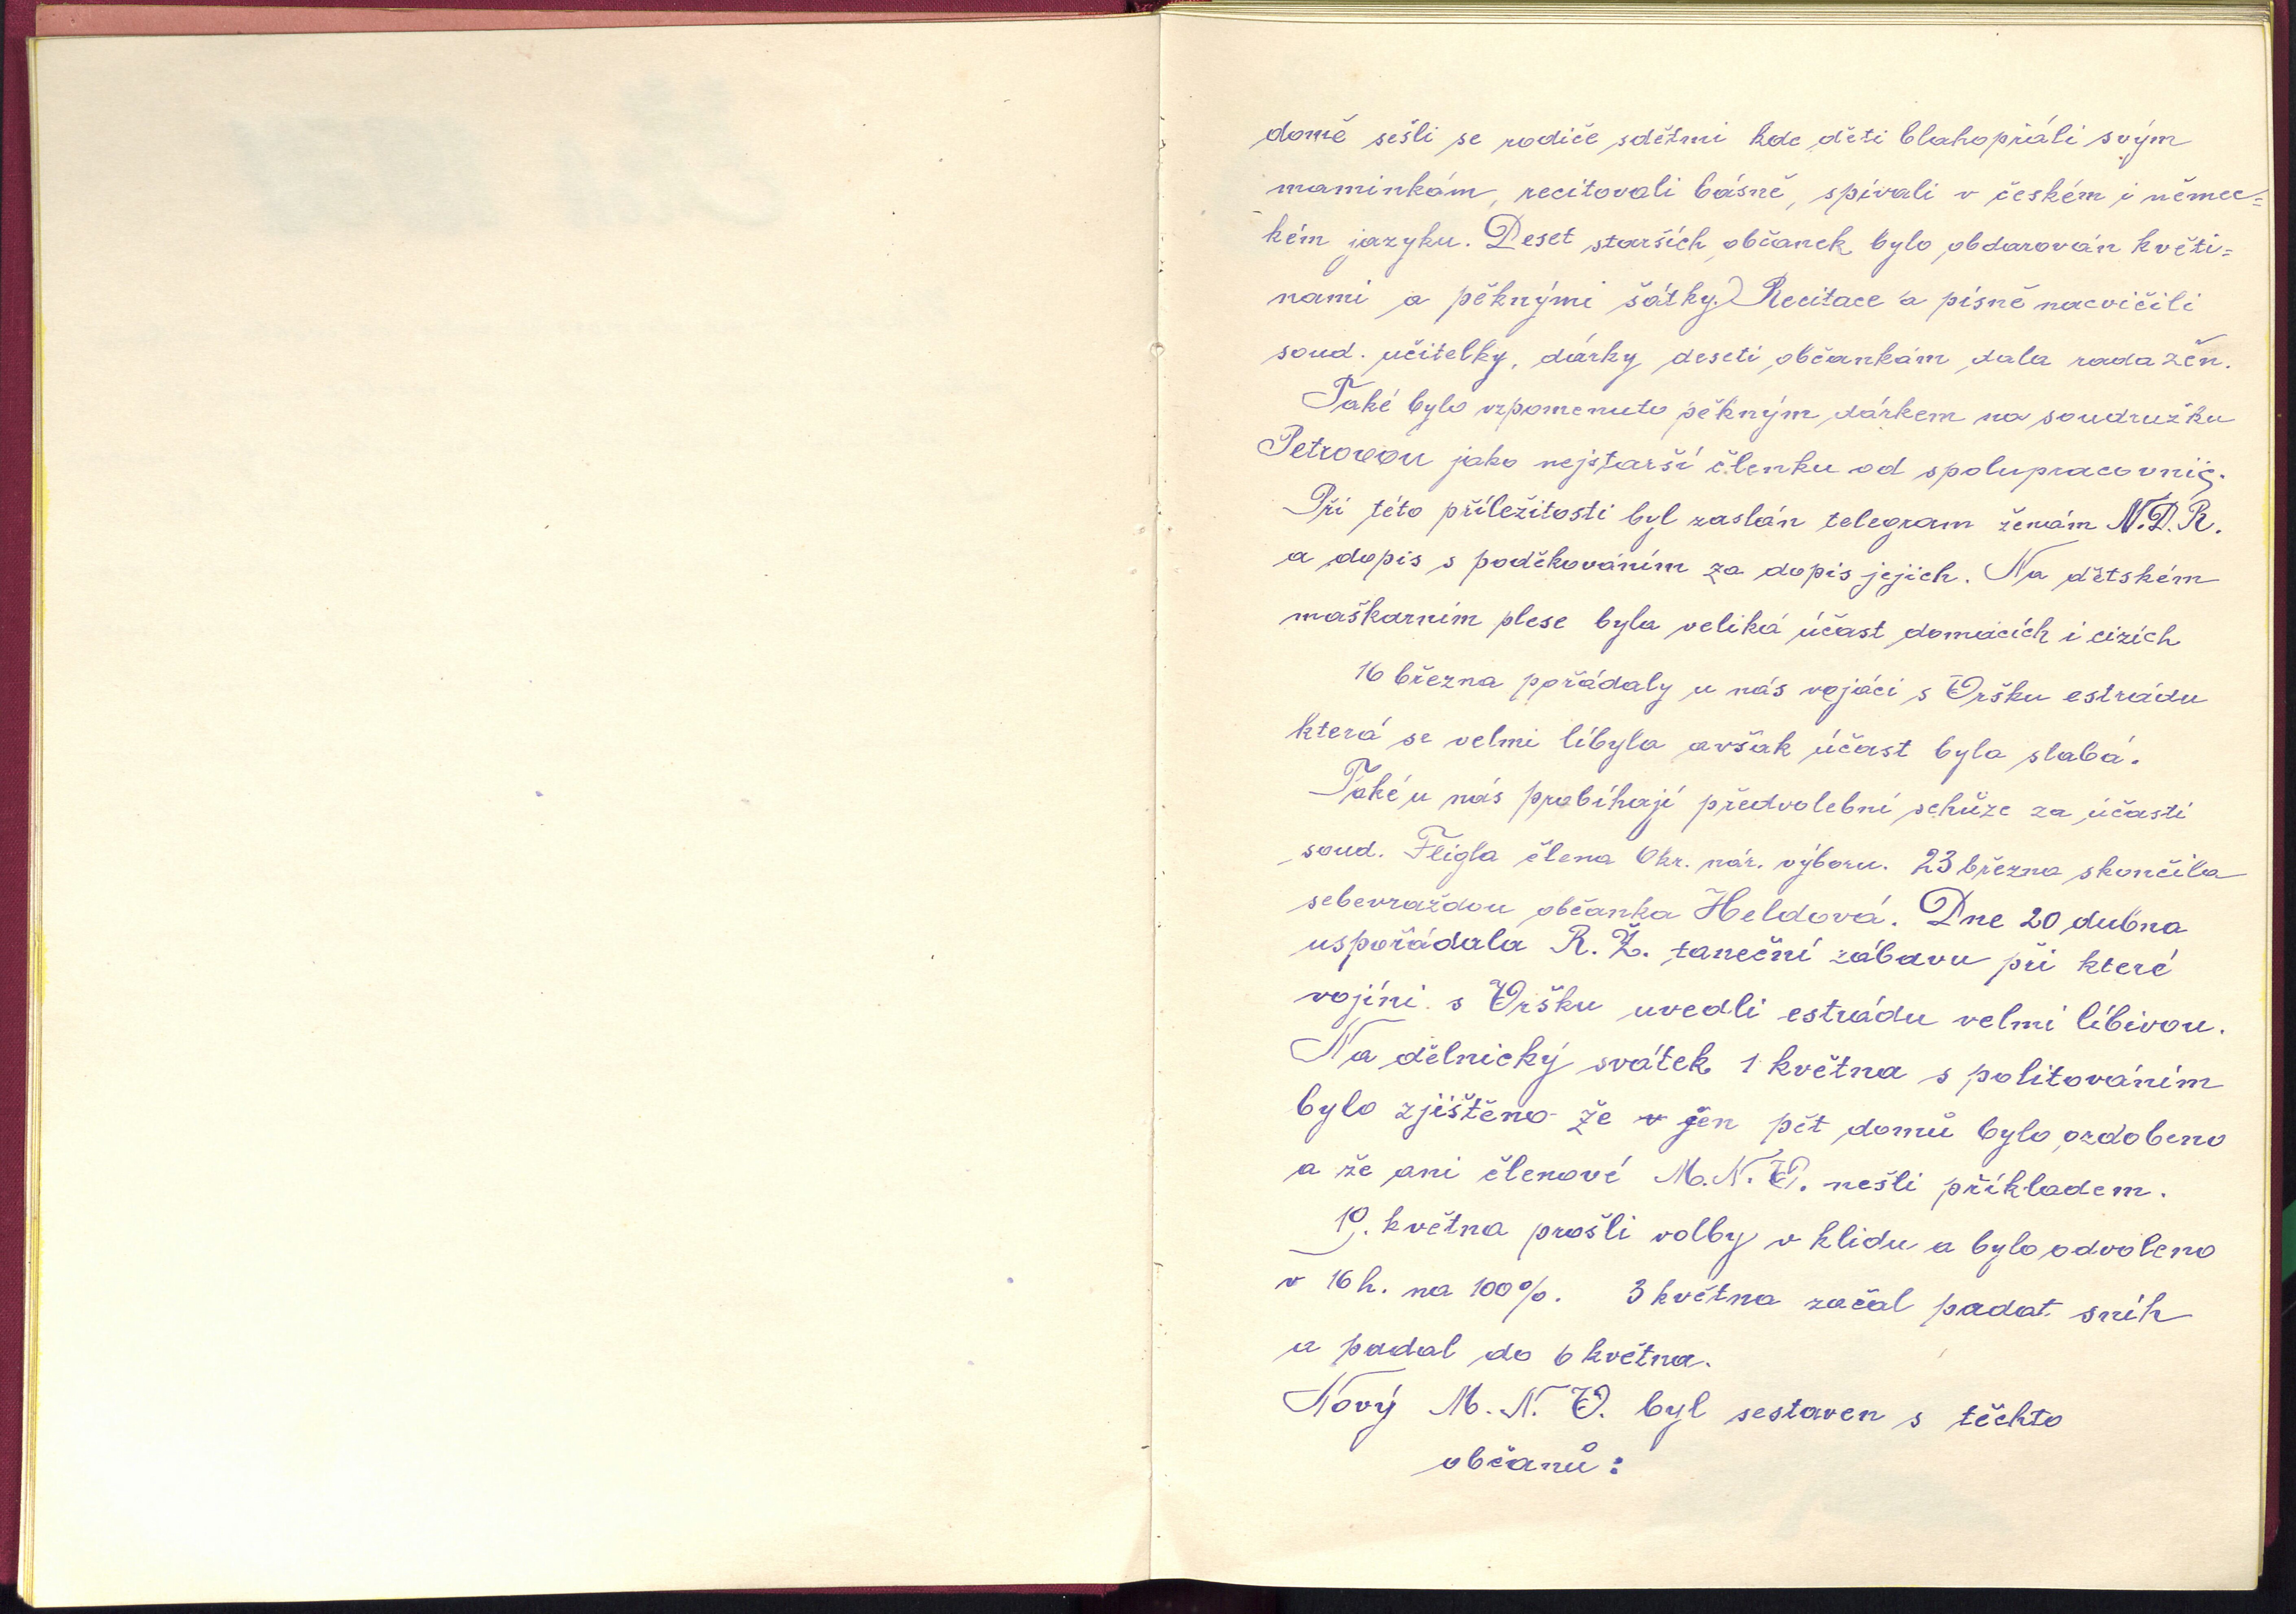 domě sešli se rodiče sdětmi kde děti blahopřáli svým
maminkám, recitovali básně, spívali v českém i němec=
kém jazyku. Deset starších občanek bylo obdarován květi=
nami a pěknými šátky.) Recitace a písně nacvičili
soud. učitelky, dárky deseti občankám dala rada žen.
Také bylo vzpomenuto pěkným dárkem na soudružku
Petrovou jako nejstarší členku od spolupracovnic.
Při této příležitosti byl zaslán telegram ženám N.D.R.
a dopis s poděkováním za dopis jejich. Na dětském
maškarním plese byla veliká účast domácích i cizích
16 března pořádaly u nás vojáci s Vršku estrádu
která se velmi líbyla avšak účast byla slabá.
Také u nás probíhají předvolební schůze za účasti
soud. Fligla člena Okr. nár. výboru. 23 března skončila
sebevraždou občanka Heldová. Dne 20 dubna
uspořádala R. Ž. taneční zábavu při které
vojíni s Vršku uvedli estrádu velmi líbivou.
Na dělnický svátek 1 května s politováním
bylo zjištěno že v jen pět domů bylo ozdobeno
a že ani členové M. N. V. nešli příkladem.
19. května prošli volby v klidu a bylo odvoleno
v 16 h. na 100%. 3 května začal padat sníh
a padal do 6 května.
Nový M. N. V. byl sestaven s těchto
občanů: